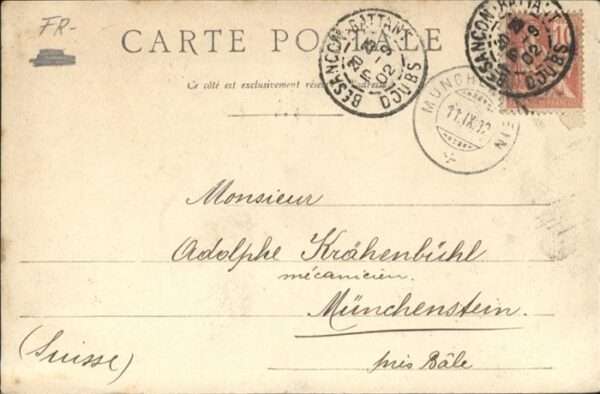 FR-
CARTE POSTALE
Ce côté est exclusivement
BESANÇON-BATTANT DOUBS 02
BESANÇON-BATTANT DOUBS 02
10
MÜNCHENSTEIN 11.IX.02
Monsieur
Adolphe Krähenbühl
mécanicien.
Münchenstein.
près Bâle
(Suisse)